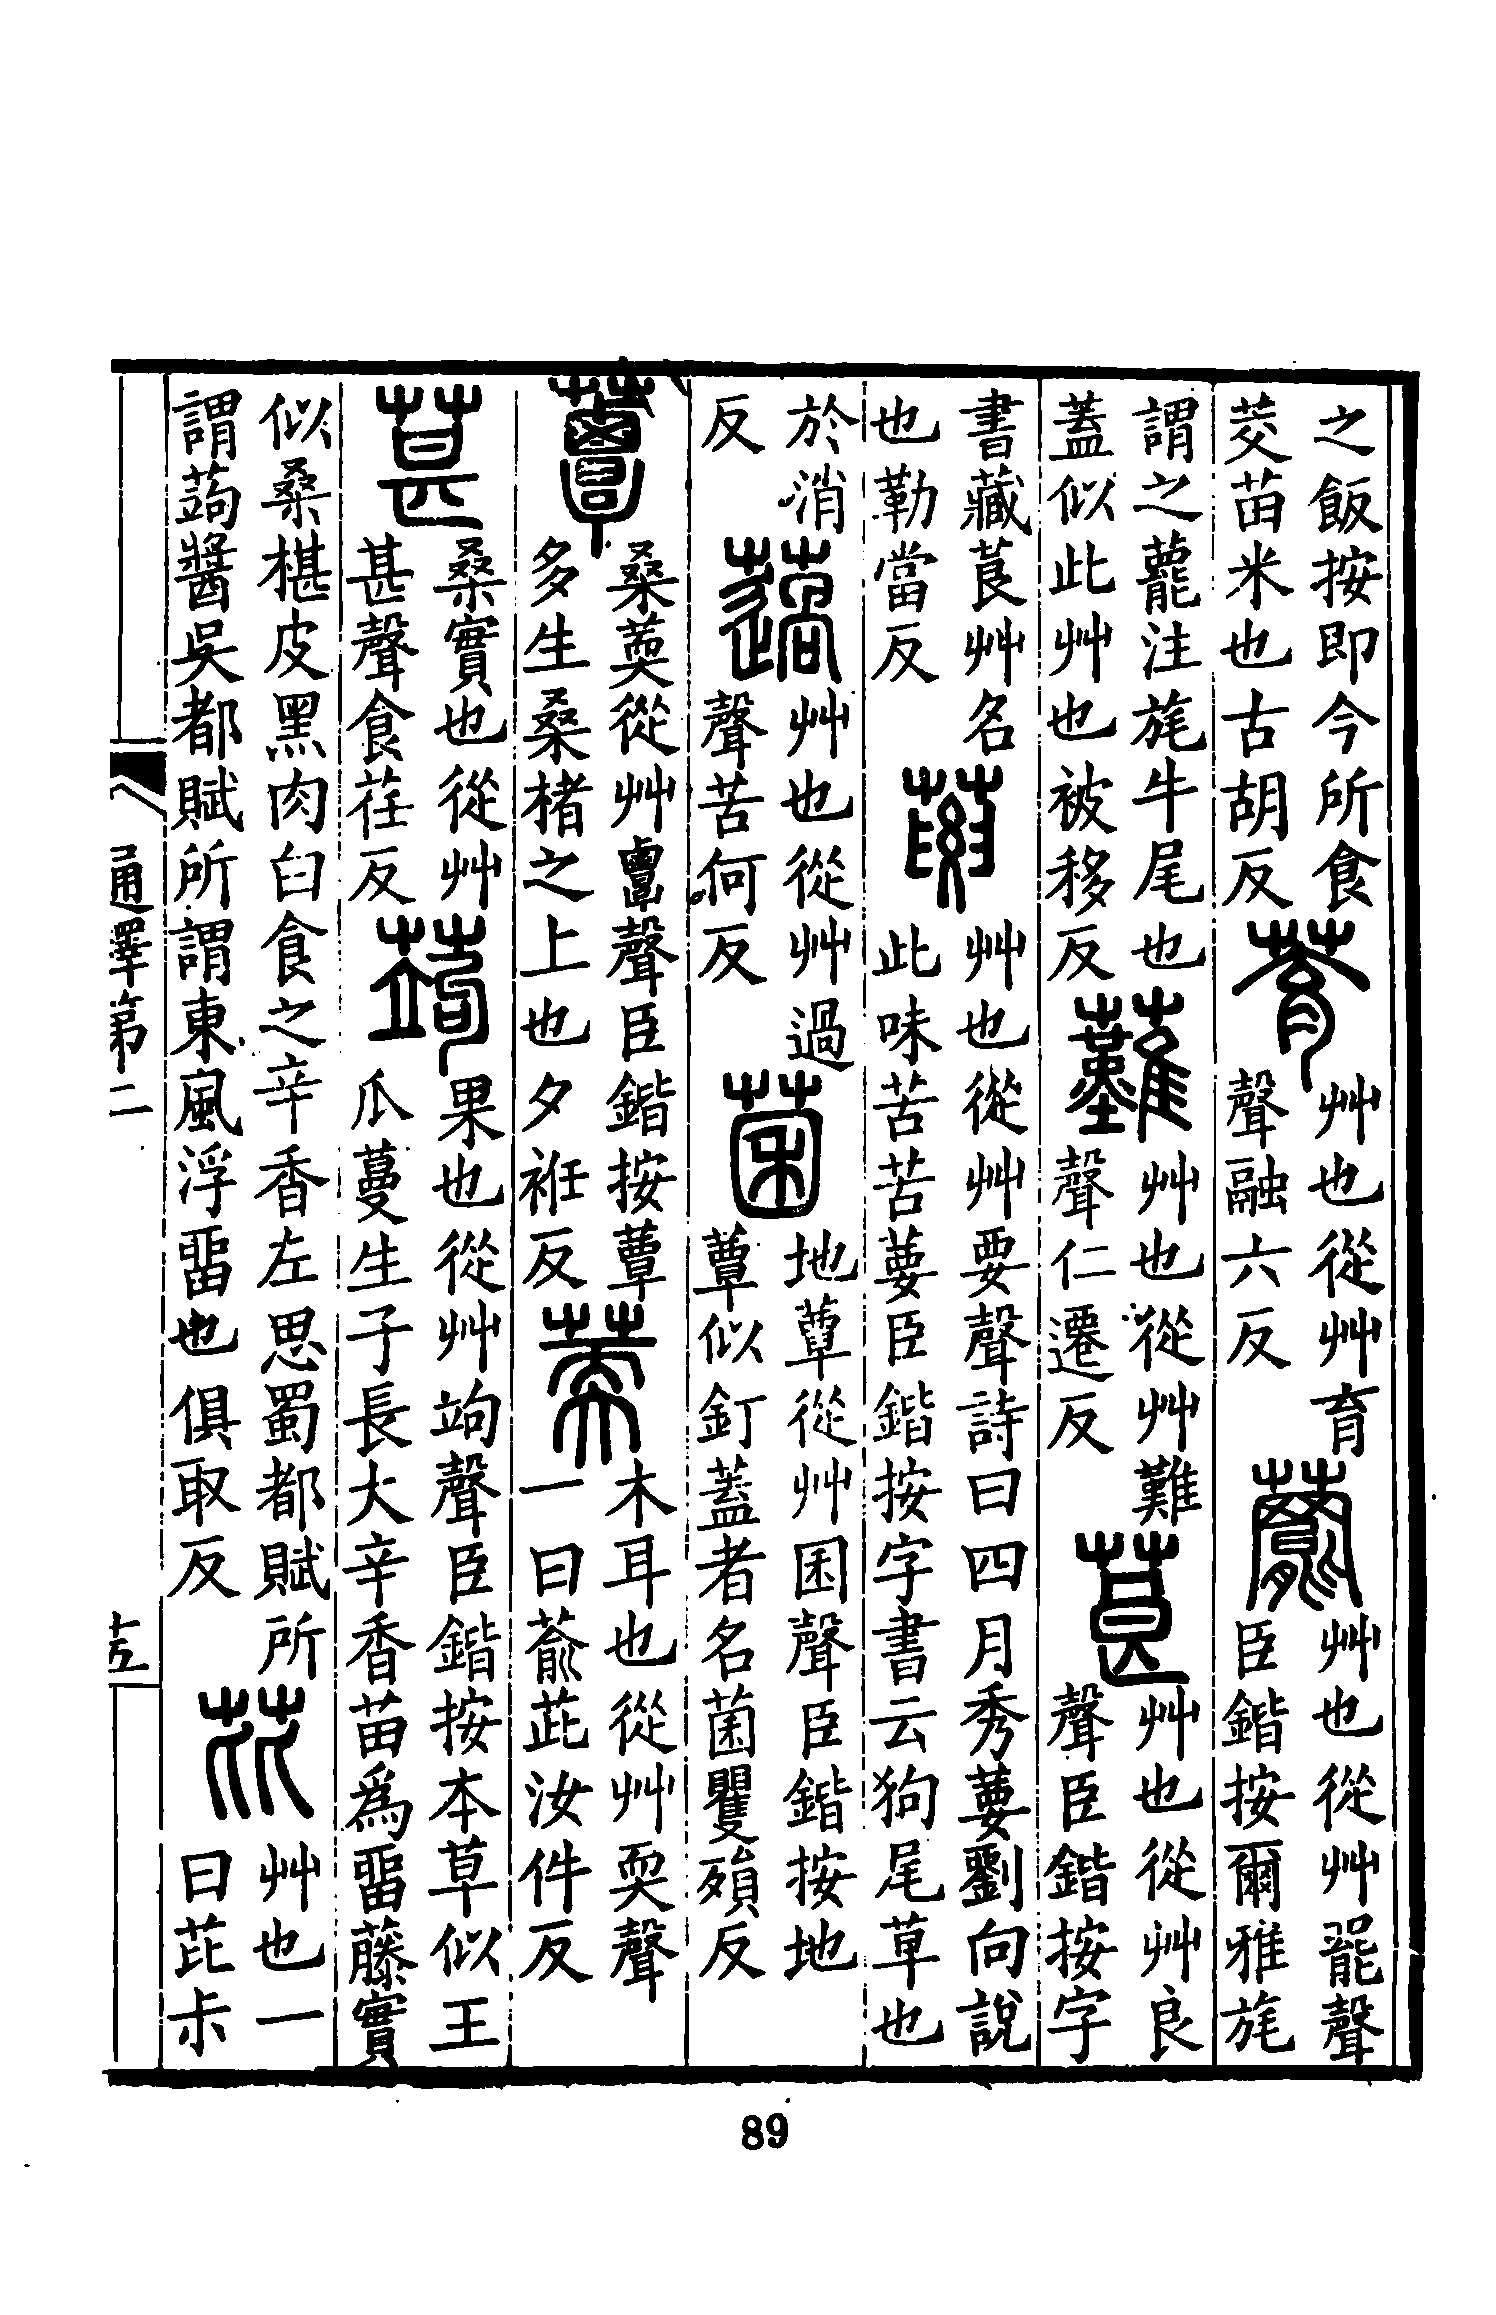 之飯按即今所食
茭苗米也古胡反
艸也從艸育
聲融六反
艸也從艸罷聲
臣鍇按爾雅旄
謂之藣注旄牛尾也
蓋似此艸也被移反
艸也從艸難
聲仁遷反
艸也從艸良
聲臣鍇按字
書藏莨艸名
也勒當反
葽
艸也從艸要聲詩曰四月秀葽劉向說
此味苦苦葽臣鍇按字書云狗尾草也
於消
反
薖
艸也從艸過
聲苦何反
菌
地蕈從艸囷聲臣鍇按地
蕈似釘蓋者名菌瞿殞反
蕈
桑䓴從艸𧟹聲臣鍇按蕈
多生桑楮之上也夕袵反
木耳也從艸耎聲
一曰蕍茈汝件反
葚
桑實也從艸
甚聲食荏反
蒟
果也從艸竘聲臣鍇按本草似王
瓜蔓生子長大辛香苗為畱藤實
似桑椹皮黑肉白食之辛香左思蜀都賦所
謂蒟醬吳都賦所謂東風浮畱也俱取反
艸也一
曰芘尗
通釋第二
89